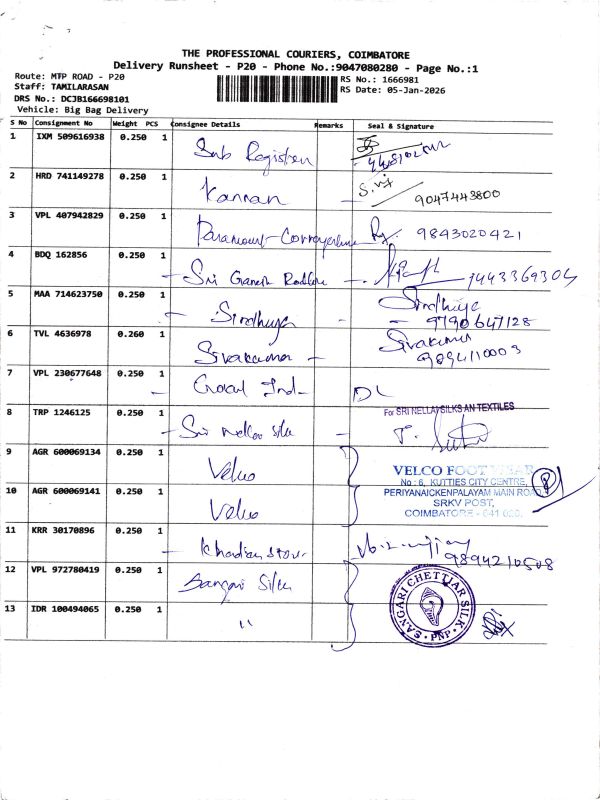 THE PROFESSIONAL COURIERS, COIMBATORE
Delivery Runsheet - P20 - Phone No.:9047080280 - Page No.:1
Route: MTP ROAD - P20
RS No.: 1666981
Staff: TAMILARASAN
RS Date: 05-Jan-2026
DRS No.: DCJB166698101
Vehicle: Big Bag Delivery
S No Consignment No Weight PCS Consignee Details Remarks Seal & Signature
1 IXM 509616938 0.250 1 Sub Registrer
2 HRD 741149278 0.250 1 Kannan 9047443800
3 VPL 407942829 0.250 1 Paramount 9843020421
4 BDQ 162856 0.250 1 Sri Ganesh 9443369304
5 MAA 714623750 0.250 1 Sindhuja Sindhuja
9790647128
6 TVL 4636978 0.260 1 Sivakumar Sivakumar
9894110003
7 VPL 230677648 0.250 1 Goval Ind DL
8 TRP 1246125 0.250 1 Sri Nellai Silk For SRI NELLAI SILKS AN TEXTILES
9 AGR 600069134 0.250 1 Velco
10 AGR 600069141 0.250 1 Velco
VELCO FOOT WEAR
No : 6, KUTTIES CITY CENTRE,
PERIYANAICKENPALAYAM MAIN ROAD
SRKV POST,
COIMBATORE - 641 020.
11 KRR 30170896 0.250 1 9894210508
12 VPL 972780419 0.250 1 Sangari Silk
13 IDR 100494065 0.250 1 "
SANGARI CHETTIAR SILK
PNP